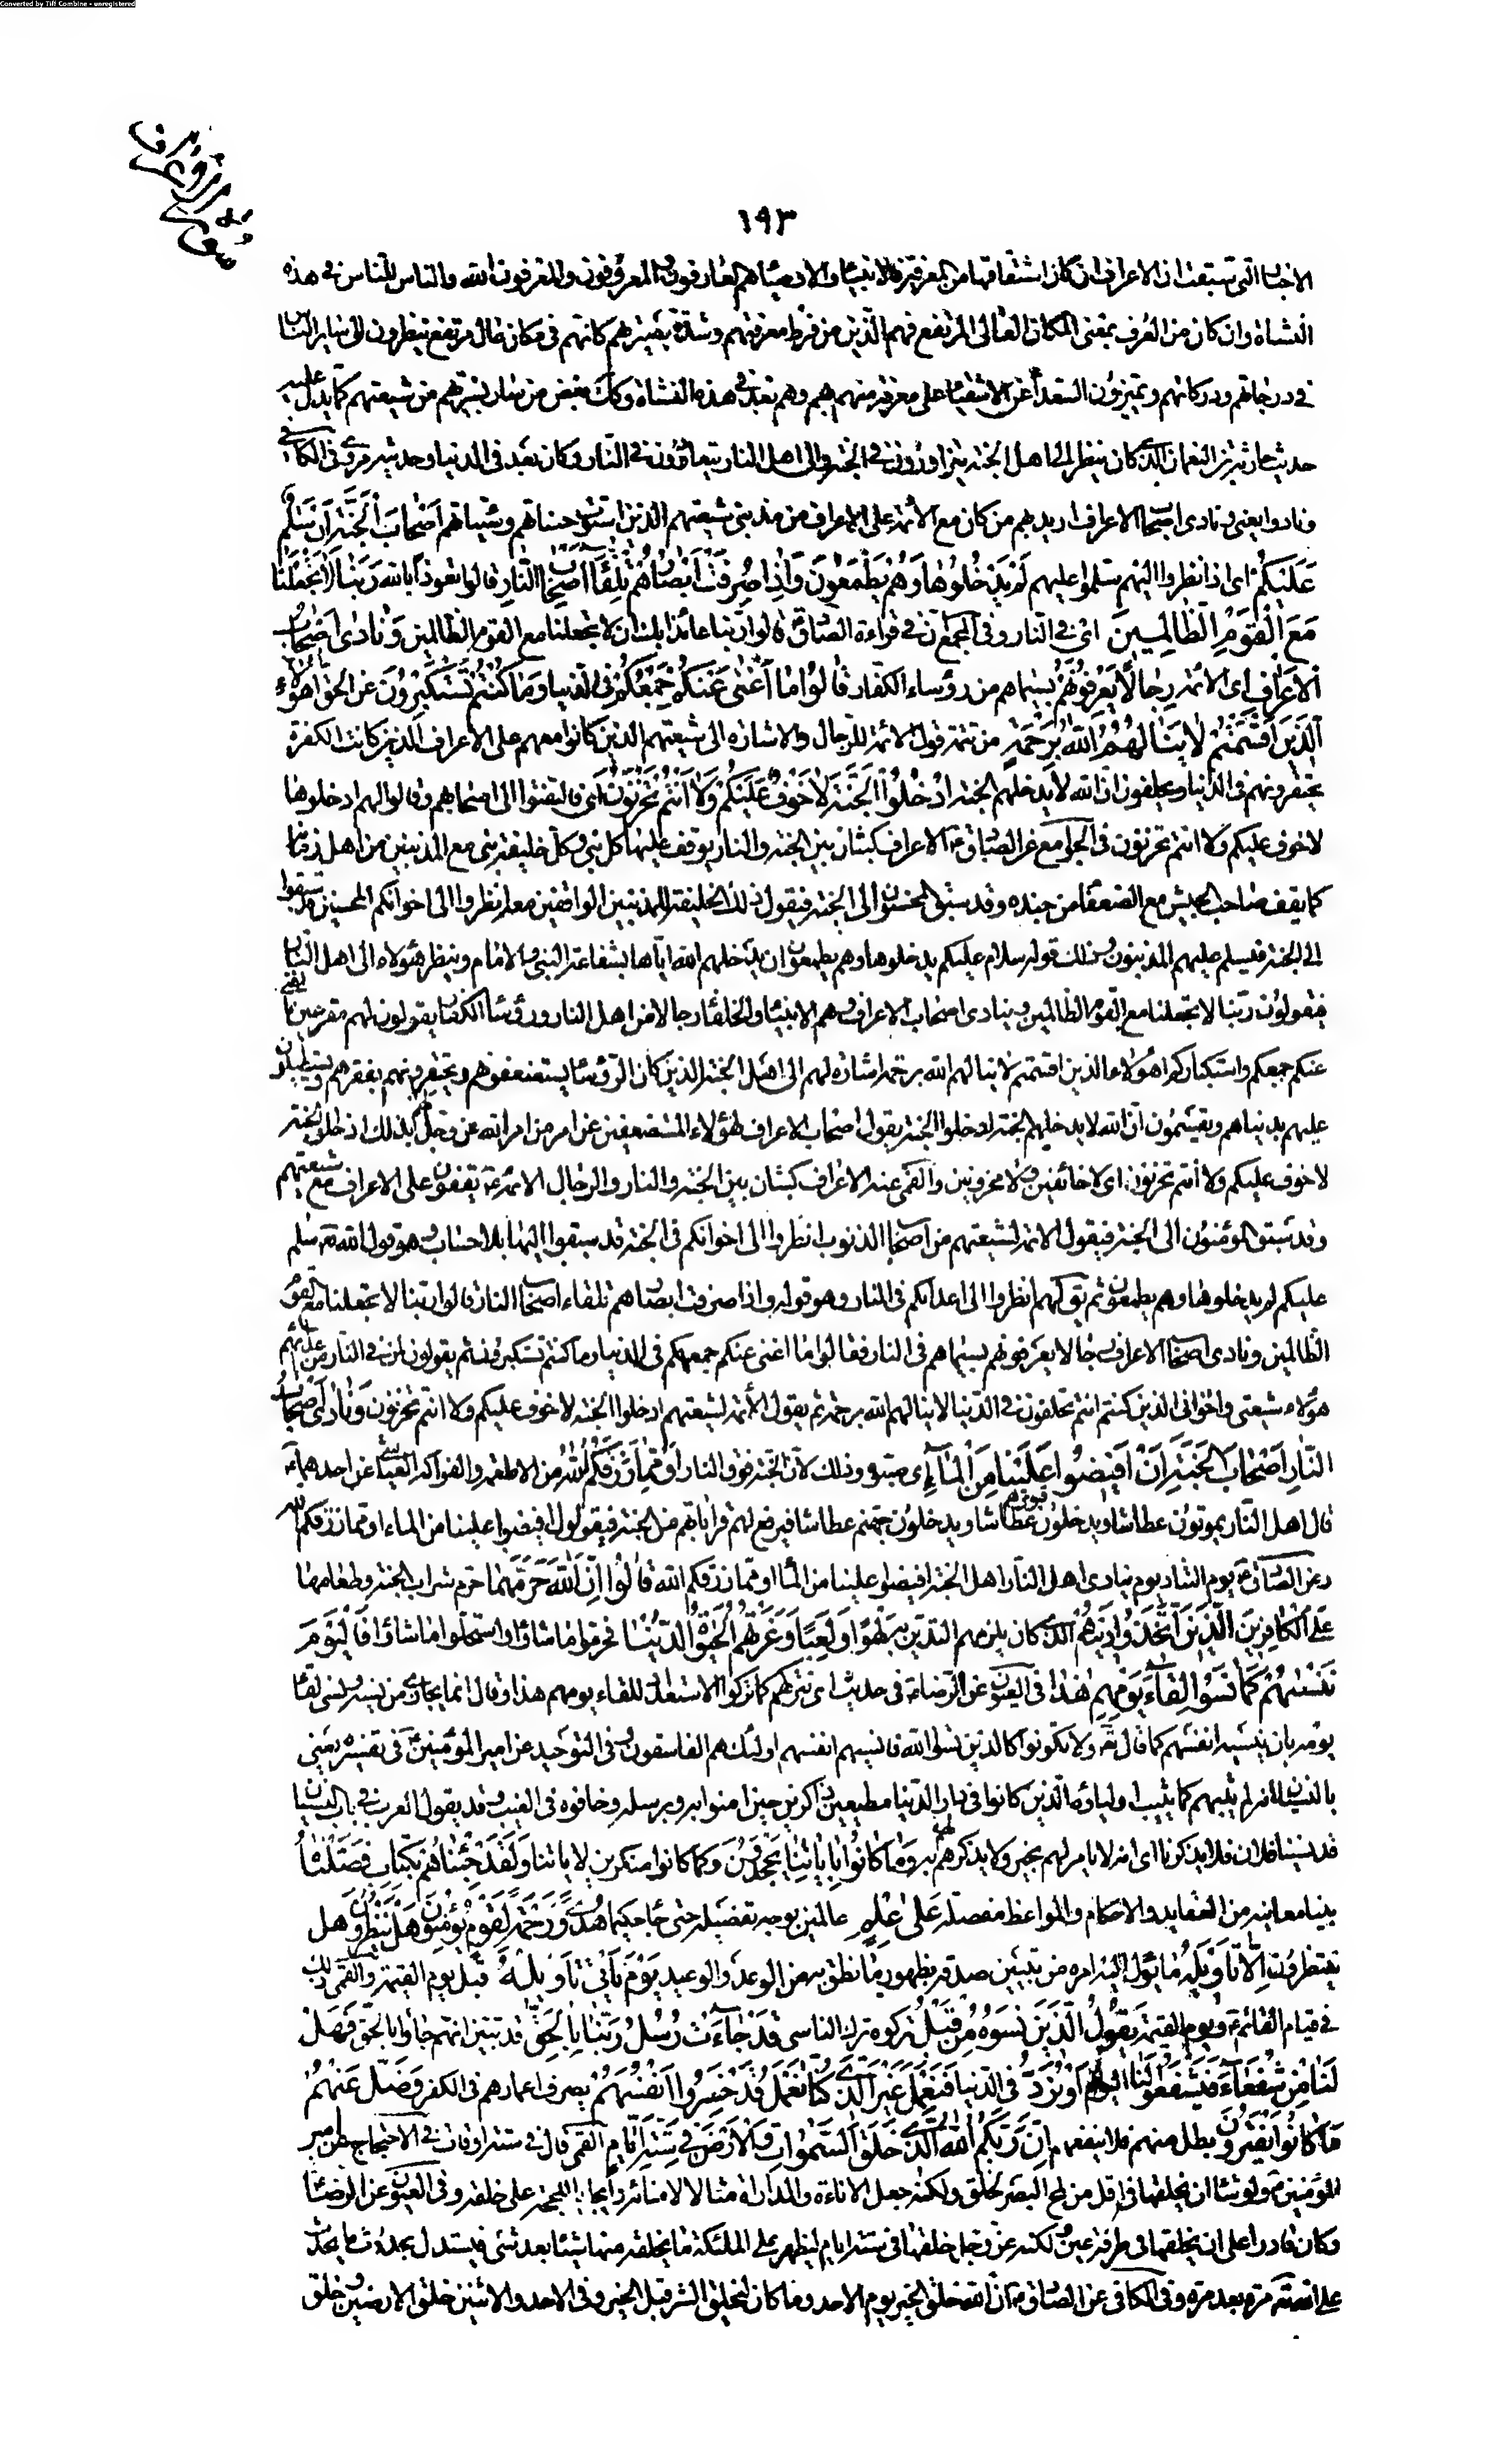 Converted by Tiff Combine - unregistered
سورة الاعراف
١٩٣
الاخبار التي سبقت ان الاعراف ان كان اشتقاقها من المعرفة فالانبياء والاوصياء هم العارفون والمعروفون والمعرفون الله والناس للناس في هذه
النشاة وان كان من العرف بمعنى المكان العالي المرتفع فهم الذين من فرط معرفتهم وشدة بصيرتهم كانهم في مكان عال مرتفع ينظرون الى ساير الناس
في درجاتهم ودركاتهم ويميزون السعداء عن الاشقياء على معرفة منهم بهم وهم بعد في هذه النشاة وكك بعض من سار بسيرتهم من شيعتهم كما يدل عليه
حديث حارثة بن النعمان الذي كان ينظر الى اهل الجنة يتزاورون في الجنة والى اهل النار يتعاوون في النار وكان بعد في الدنيا وحديثه مروي في الكافي
ونادوا يعني ونادى اصحاب الاعراف اريد بهم من كان مع الائمة على الاعراف من مذنبي شيعتهم الذين استوت حسناتهم وسيئاتهم اصحاب الجنة ان سلم
عليكم اي اذا نظروا اليهم سلموا عليهم لم يدخلوها وهم يطمعون واذا صرفت ابصارهم تلقاء اصحاب النار قالوا نعوذ بالله ربنا لا تجعلنا
مع القوم الظالمين اي في النار وفي المجمع ان في قراءة الصادق قالوا ربنا عائذا بك ان لا تجعلنا مع القوم الظالمين ونادى اصحاب
الاعراف اي الائمة رجالا يعرفونهم بسيماهم من رؤساء الكفار قالوا ما اغنى عنكم جمعكم في الدنيا وما كنتم تستكبرون عن الحق اهؤلاء
الذين اقسمتم لا ينالهم الله برحمة من تتمة قول الائمة للرجال والاشارة الى شيعتهم الذين كانوا معهم على الاعراف الذين كانت الكفرة
يحتقرونهم في الدنيا ويحلفون ان الله لا يدخلهم الجنة ادخلوا الجنة لا خوف عليكم ولا انتم تحزنون اي فالتفتوا الى اصحابهم وقالوا لهم ادخلوها
لا خوف عليكم ولا انتم تحزنون في الجوامع عن الصادق ع الاعراف كثبان بين الجنة والنار يوقف عليها كل نبي وكل خليفة نبي مع المذنبين من اهل زمانه
كما يقف صاحب الجيش مع الضعفاء من جنده وقد سبق المحسنون الى الجنة فيقول ذلك الخليفة للمذنبين الواقفين معه انظروا الى اخوانكم المحسنين قد سبقوا
الى الجنة فيسلم عليهم المذنبون وذلك قوله سلام عليكم لم يدخلوها وهم يطمعون ان يدخلهم الله اياها بشفاعة النبي والامام وينظر هؤلاء الى اهل النار
فيقولون ربنا لا تجعلنا مع القوم الظالمين وينادى اصحاب الاعراف وهم الانبياء والخلفاء رجالا من اهل النار ورؤساء الكفار يقولون لهم مقرعين ما اغنى
عنكم جمعكم واستكباركم اهؤلاء الذين اقسمتم لا ينالهم الله برحمة اشارة لهم الى اهل الجنة الذين كان الرؤساء يستضعفونهم ويحتقرونهم بفقرهم ويستطيلون
عليهم بدنياهم ويقسمون ان الله لا يدخلهم الجنة ادخلوا الجنة يقول اصحاب الاعراف لهؤلاء المستضعفين عن امر من امر الله عز وجل لهم بذلك ادخلوا الجنة
لا خوف عليكم ولا انتم تحزنون اي لا خائفين ولا محزونين والقمي عنه الاعراف كثبان بين الجنة والنار والرجال الائمة ع يقفون على الاعراف مع شيعتهم
وقد سبق المؤمنون الى الجنة فيقول الائمة لشيعتهم من اصحاب الذنوب انظروا الى اخوانكم في الجنة قد سبقوا اليها بلا حساب وهو قول الله تع سلم
عليكم لم يدخلوها وهم يطمعون ثم يقال لهم انظروا الى اعدائكم في النار وهو قوله واذا صرفت ابصارهم تلقاء اصحاب النار قالوا ربنا لا تجعلنا مع القوم
الظالمين ونادى اصحاب الاعراف رجالا يعرفونهم بسيماهم في النار فقالوا ما اغنى عنكم جمعكم في الدنيا وما كنتم تستكبرون ثم يقولون لمن في النار من اعدائهم
هؤلاء شيعتي واخواني الذين كنتم انتم تحلفون في الدنيا لا ينالهم الله برحمة ثم يقول الائمة لشيعتهم ادخلوا الجنة لا خوف عليكم ولا انتم تحزنون ونادى اصحاب
النار اصحاب الجنة ان افيضوا علينا من الماء اي صبوه وذلك لان الجنة فوق النار او مما رزقكم الله من الاطعمة والفواكه العياشي عن احدهما ع
قال اهل النار يموتون عطاشا ويدخلون قبورهم عطاشا ويدخلون جهنم عطاشا فيرفع لهم قراباتهم من الجنة فيقولون افيضوا علينا من الماء او مما رزقكم الله
وعن الصادق ع يوم التناد يوم ينادى اهل النار اهل الجنة افيضوا علينا من الماء او مما رزقكم الله قالوا ان الله حرمهما حرم شراب الجنة وطعامها
على الكافرين الذين اتخذوا دينهم الذي كان يلزمهم التدين به لهوا ولعبا وغرتهم الحيوة الدنيا فحرموا ما شاؤا واستحلوا ما شاؤا فاليوم
ننسيهم كما نسوا لقاء يومهم هذا في العيون عن الرضا ع في حديث اي نتركهم كما تركوا الاستعداد للقاء يومهم هذا وقال انما يجازي من نسيه ونسى لقاء
يومه بان ينسيه انفسهم كما قال تع ولا تكونوا كالذين نسوا الله فانسيهم انفسهم اولئك هم الفاسقون وفي التوحيد عن امير المؤمنين ع في تفسيره يعني
بالنسيان انه لم يثبهم كما يثيب اولياءه الذين كانوا في دار الدنيا مطيعين ذاكرين حين امنوا به وبرسله وخافوه في الغيب وقد يقول العرب في باب النسيان
قد نسينا فلان فلا يذكرنا اي انه لا يامر لهم بخير ولا يذكرهم به وما كانوا باياتنا يجحدون وكما كانوا منكرين لاياتنا ولقد جئناهم بكتاب فصلناه
بينا معانيه من العقايد والاحكام والمواعظ مفصلة على علم عالمين بوجه تفصيله حتى جاء حكيما هدى ورحمة لقوم يؤمنون هل ينظرون هل
ينتظرون الا تاويله ما يؤل اليه امره من تبيين صدقه بظهور ما نطق به من الوعد والوعيد يوم ياتي تاويله قيل يوم القيمة والقمي ذلك
في قيام القائم ع ويوم القيمة يقول الذين نسوه من قبل تركوه ترك الناسي قد جاءت رسل ربنا بالحق قد تبين انهم جاؤا بالحق فهل
لنا من شفعاء فيشفعوا لنا اليوم او نرد في الدنيا فنعمل غير الذي كنا نعمل قد خسروا انفسهم بصرف اعمارهم في الكفر وضل عنهم
ما كانوا يفترون بطل منهم فلا ينفعهم ان ربكم الله الذي خلق السموات والارض في ستة ايام القمي قال في ستة اوقات في الاحتجاج عن امير
المؤمنين ع ولو شاء ان يخلقها في اقل من لمح البصر لخلق ولكنه جعل الاناءة والمداراة مثالا لامنائه وايجابا للحجة على خلقه وفي العيون عن الرضا ع
وكان قادرا على ان يخلقها في طرفة عين ولكنه عز وجل خلقها في ستة ايام ليظهر على الملئكة ما يخلقه منها شيئا بعد شئ فيستدل بحدوث ما يحدث
على الله تع مرة بعد مرة وفي الكافي عن الصادق ع ان الله خلق الخير يوم الاحد وما كان ليخلق الشر قبل الخير وفي الاحد والاثنين خلق الارضين وخلق